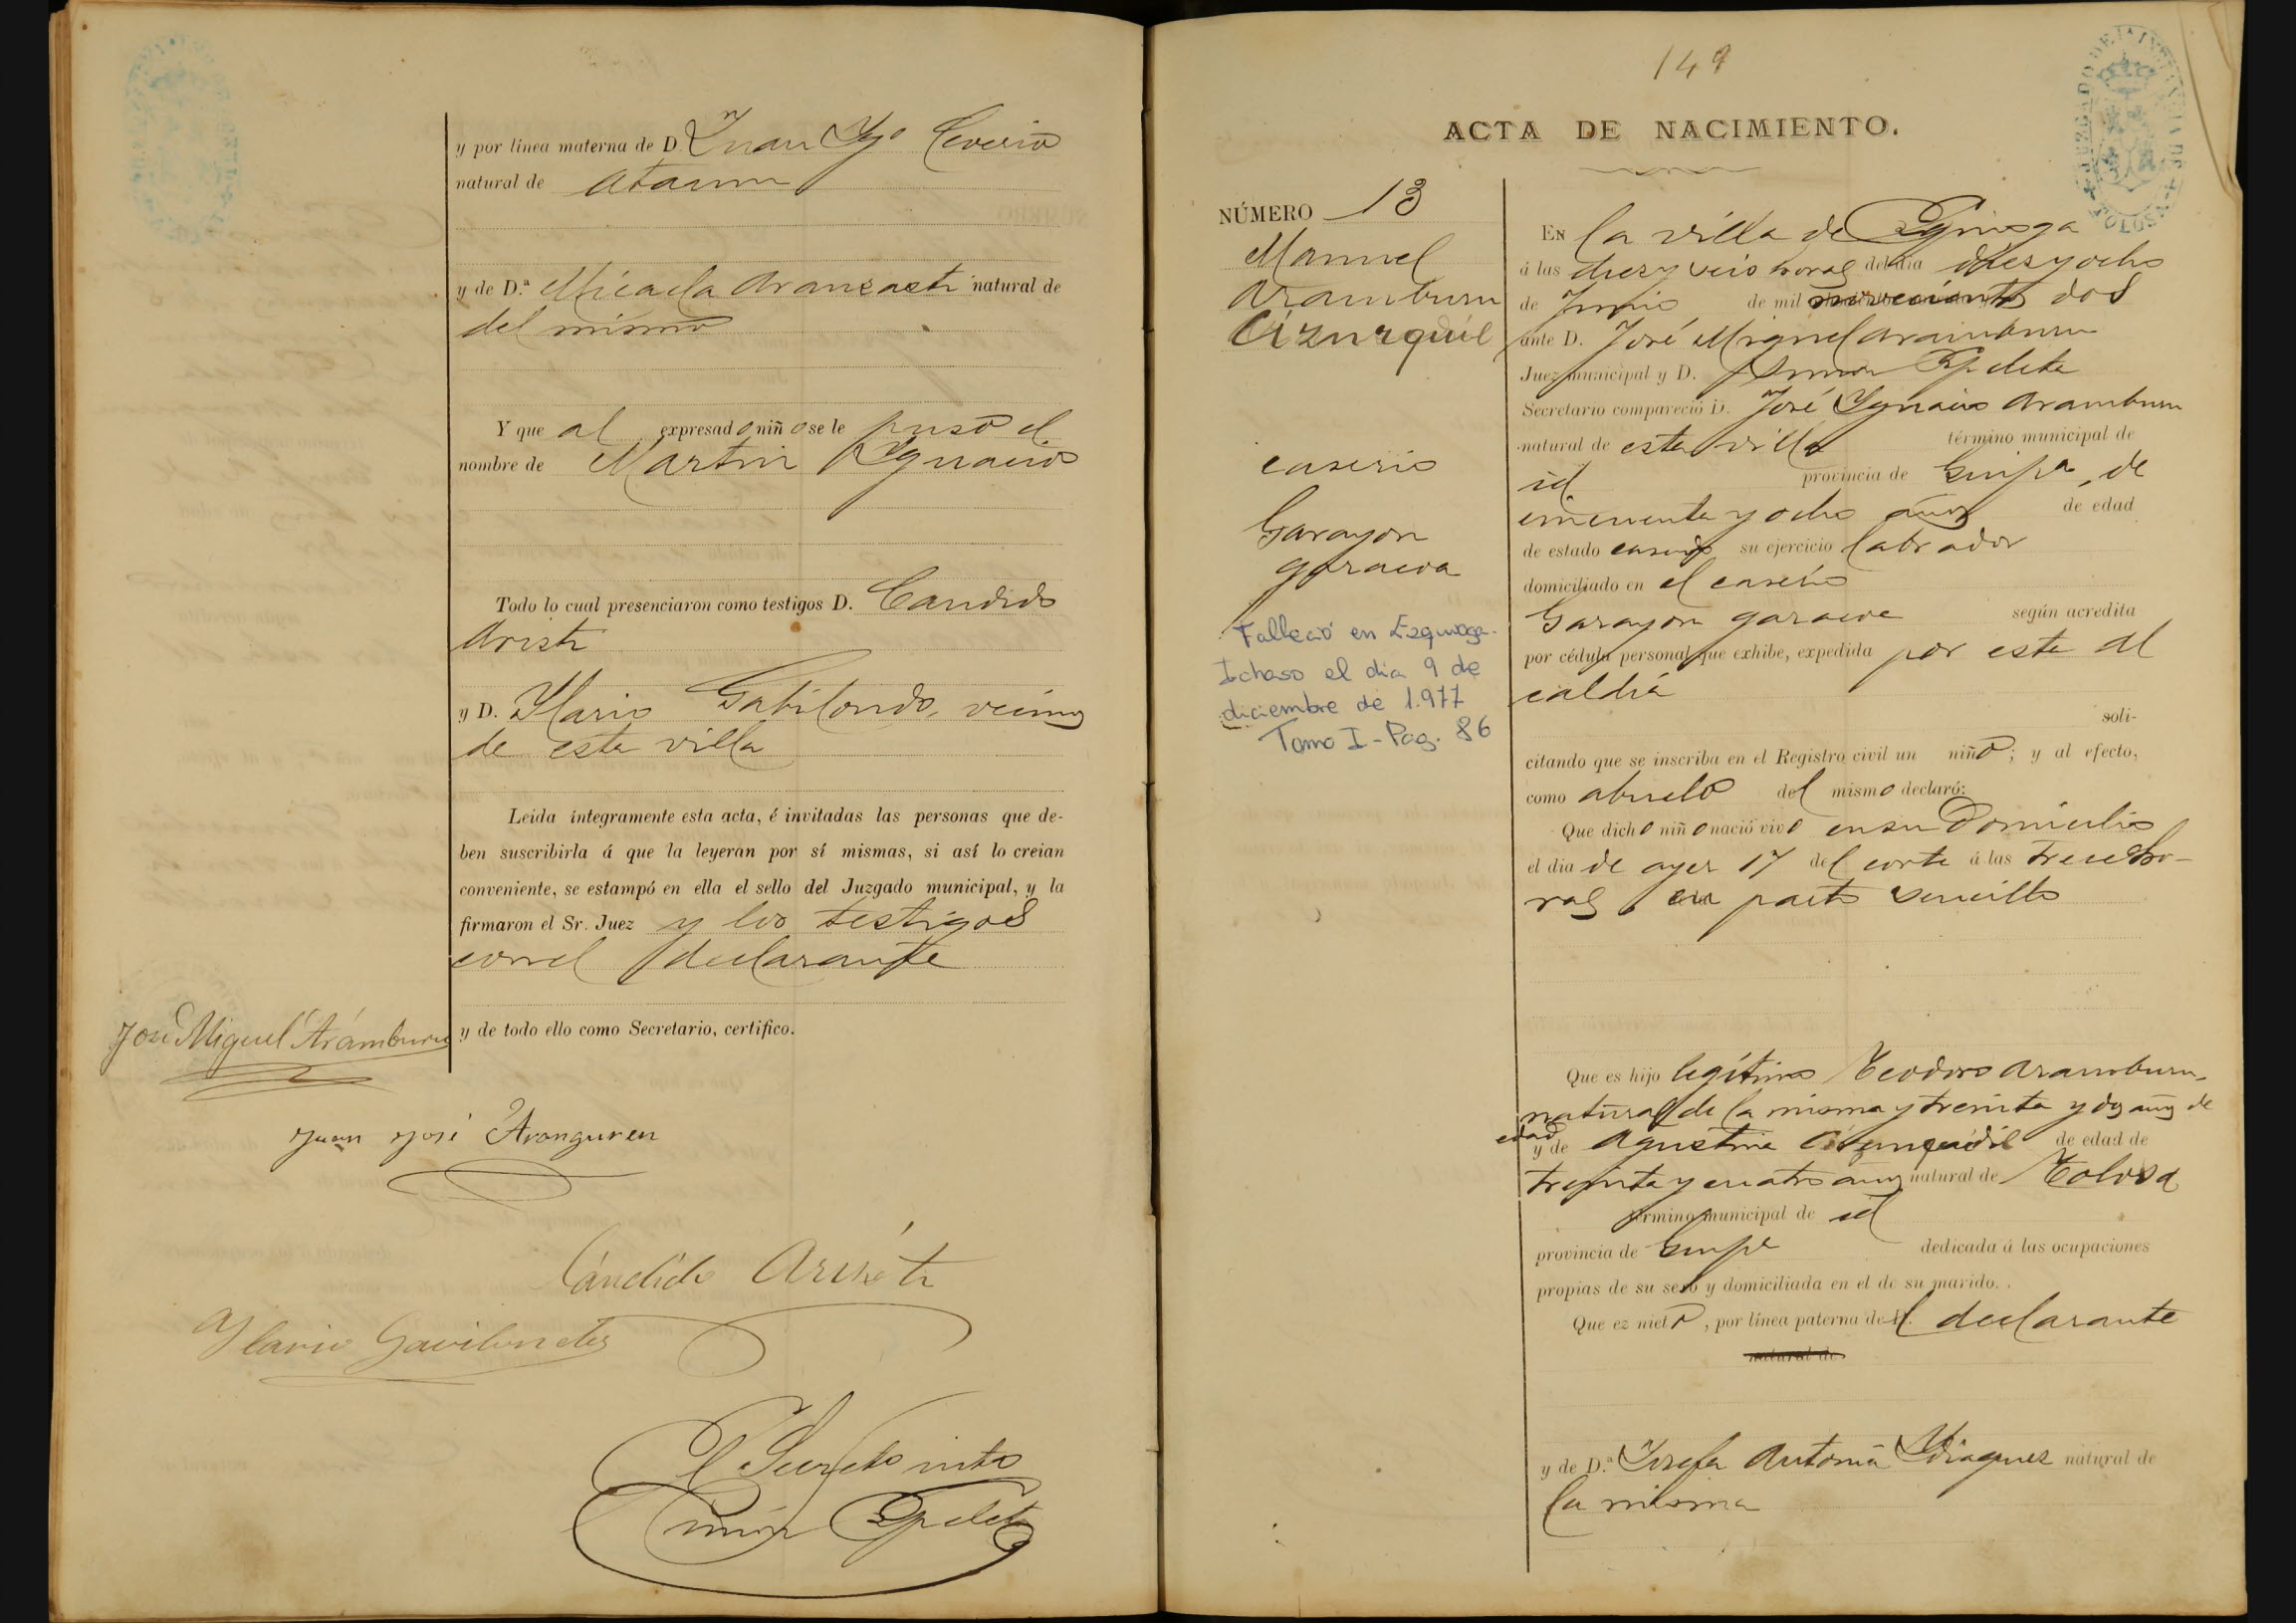 y por línea materna de D. Juan Ygº Ceverio
natural de Ataun
y de D.ª Micaela Aranzasti natural de
del mismo
Y que al expresado niño se le puso el
nombre de Martin Ygnacio
Todo lo cual presenciaron como testigos D. Candido
Aristi
y D. Ylario Gabilondo, vecinos
de esta villa
Leida íntegramente esta acta, é invitadas las personas que de-
ben suscribirla á que la leyeran por sí mismas, si así lo creian
conveniente, se estampó en ella el sello del Juzgado municipal, y la
firmaron el Sr. Juez y los testigos
con el declarante
y de todo ello como Secretario, certifico.
José Miguel Aramburu
Juan José Aranguren
Cándido Aristi
Ylario Gavilondo
El Secreto into
Simón Egileta
149
ACTA DE NACIMIENTO.
NÚMERO 13
Manuel
Aramburu
Cizurquil
caserio
Garayon
garacoa
Falleció en Ezquioga-
Ichaso el dia 9 de
diciembre de 1.977
Tomo I - Pag. 86
JUZGADO DE 1ª INSTANCIA DE TOLOSA
EN la villa de Ezquioga
á las diez y seis horas del dia diez y ocho
de Junio de mil novecientos dos
ante D. José Miguel Aramburu
Juez municipal y D. Simón
Secretario compareció D. José Ygnacio Aramburu
natural de esta villa término municipal de
id provincia de Guipª, de
cincuenta y ocho años de edad
de estado casado su ejercicio labrador
domiciliado en el caserio
Garayon garacoa según acredita
por cédula personal que exhibe, expedida por esta Al
caldía
soli-
citando que se inscriba en el Registro civil un niño; y al efecto,
como abuelo del mismo declaró:
Que dicho niño nació vivo en su Domicilio
el dia de ayer 17 del corte á las trece ho-
ras, en parto sencillo
Que es hijo legítimo Teodoro Aramburu,
natural de la misma y treinta y dos años de
edad
y de Agustina Cizurquil de edad de
treinta y cuatro años natural de Tolosa
término municipal de id
provincia de Guipª dedicada á las ocupaciones
propias de su sexo y domiciliada en el de su marido.
Que es nieto, por línea paterna del declarante
natural de
y de D.ª Josefa Antonia Ydiaquez natural de
la misma